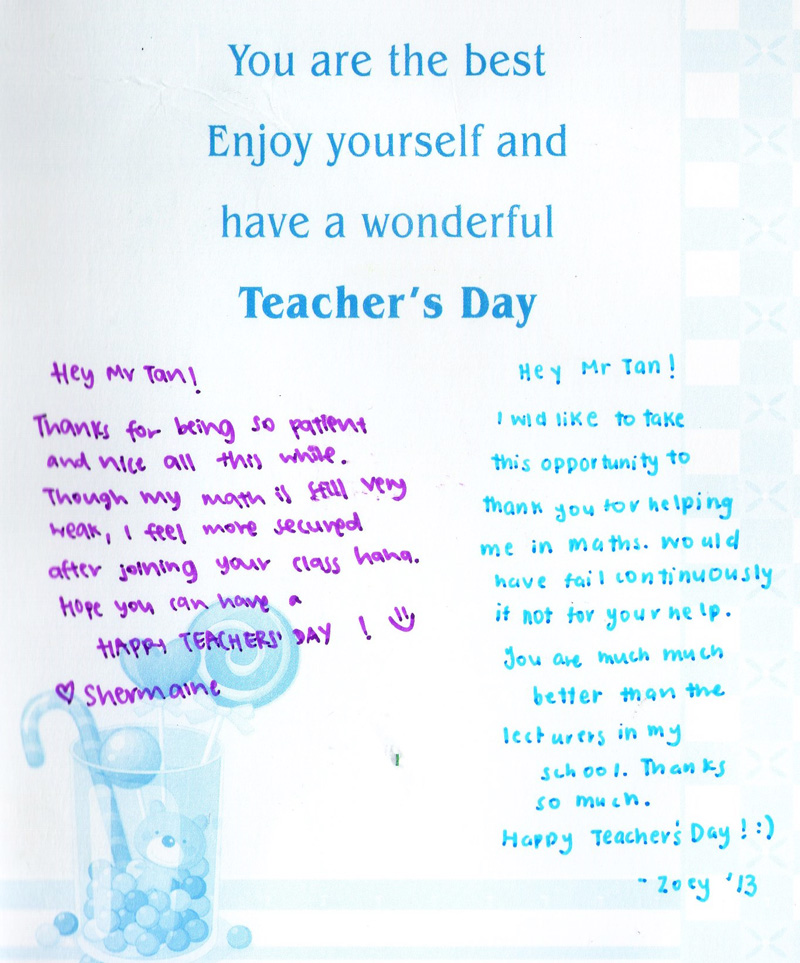 You are the best
Enjoy yourself and
have a wonderful
Teacher's Day
Hey Mr Tan!
Thanks for being so patient
and nice all this while.
Though my math is still very
weak, I feel more secured
after joining your class haha.
Hope you can have a
HAPPY TEACHERS' DAY !
♡ Shermaine
Hey Mr Tan!
I wld like to take
this opportunity to
thank you for helping
me in maths. Would
have fail continuously
if not for your help.
You are much much
better than the
lecturers in my
school. Thanks
so much.
Happy Teacher's Day! :)
- Zoey '13